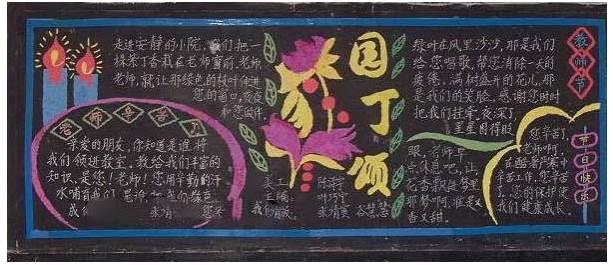 走进安静的小院,我们把一
株米丁香栽在老师窗前。老师,
老师,就让那绿色的枝叶伸进
您的窗口,夜夜
和您做伴。
老师辛苦了
亲爱的朋友,你知道是谁将
我们领进教室,教给我们丰富的
知识,是您!老师!您用辛勤的汗
水哺育我们
园丁颂
美工
绿叶在风里沙沙,那是我们
给您唱歌,帮您消除一天的
疲倦。满树盛开的花儿,那
是我们的笑脸,感谢您时时
把我们挂牵。夜深了,
星星困得眨
眼,老师早
点休息吧,让
花香飘进
那梦啊,准是
香又甜。
教师节
您辛苦了,
老师啊,
在酷暑严寒中
辛苦工作,您辛苦
了。您的保护使
我们健康成长。
节日快乐